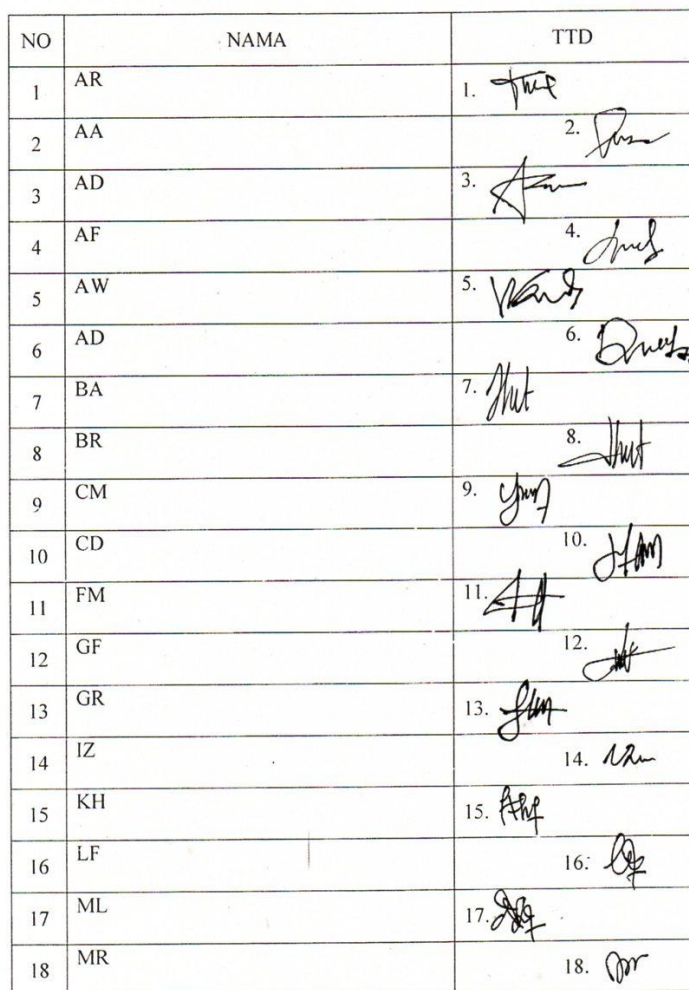 NO NAMA TTD
1 AR 1.
2 AA 2.
3 AD 3.
4 AF 4.
5 AW 5.
6 AD 6.
7 BA 7.
8 BR 8.
9 CM 9.
10 CD 10.
11 FM 11.
12 GF 12.
13 GR 13.
14 IZ 14.
15 KH 15.
16 LF 16.
17 ML 17.
18 MR 18.